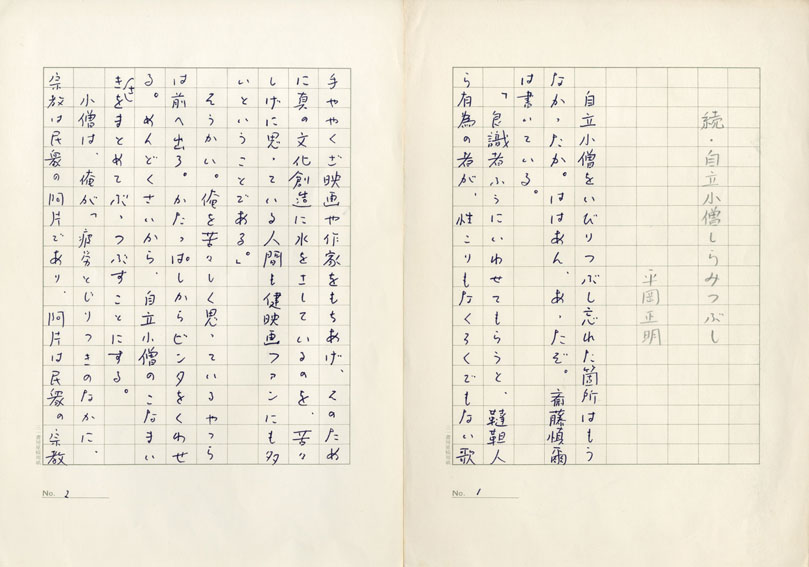 続・自立小僧しらみつぶし
平岡正明
自立小僧をいびりつぶし忘れた箇所はもう
なかったか。ははあん、あったぞ。斎藤慎爾
は書いている。
「良識者ふうにいわせてもらうと、韃靼人
ら有為の者が、性こりもなくろくでもない歌
No. 1
手ややくざ映画や作家をもちあげ、そのため
に真の文化創造に水をさしているのを、苦々
しげに思っている人間も健映画ファンにも多
いということである。」
そうかい。俺を苦々しく思っているやつら
は前へ出ろ。かたっぱしからビンタをくわせ
る。めんどくさいから、自立小僧のこなまい
きをまとめてぶっつぶすことにする。
小僧は、俺が「疲労とじりつきのなかに、
宗教は民衆の阿片であり、阿片は民衆の宗教
No. 2